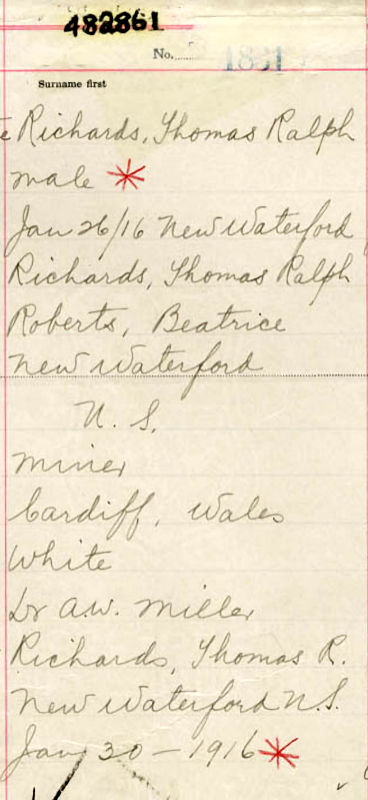 482861
No. 1831
Surname first
Richards, Thomas Ralph
male *
Jan 26/16 New Waterford
Richards, Thomas Ralph
Roberts, Beatrice
New Waterford
N. S.
miner
Cardiff, Wales
White
Dr A.W. Miller
Richards, Thomas R.
New Waterford N.S.
Jan 30 - 1916 *